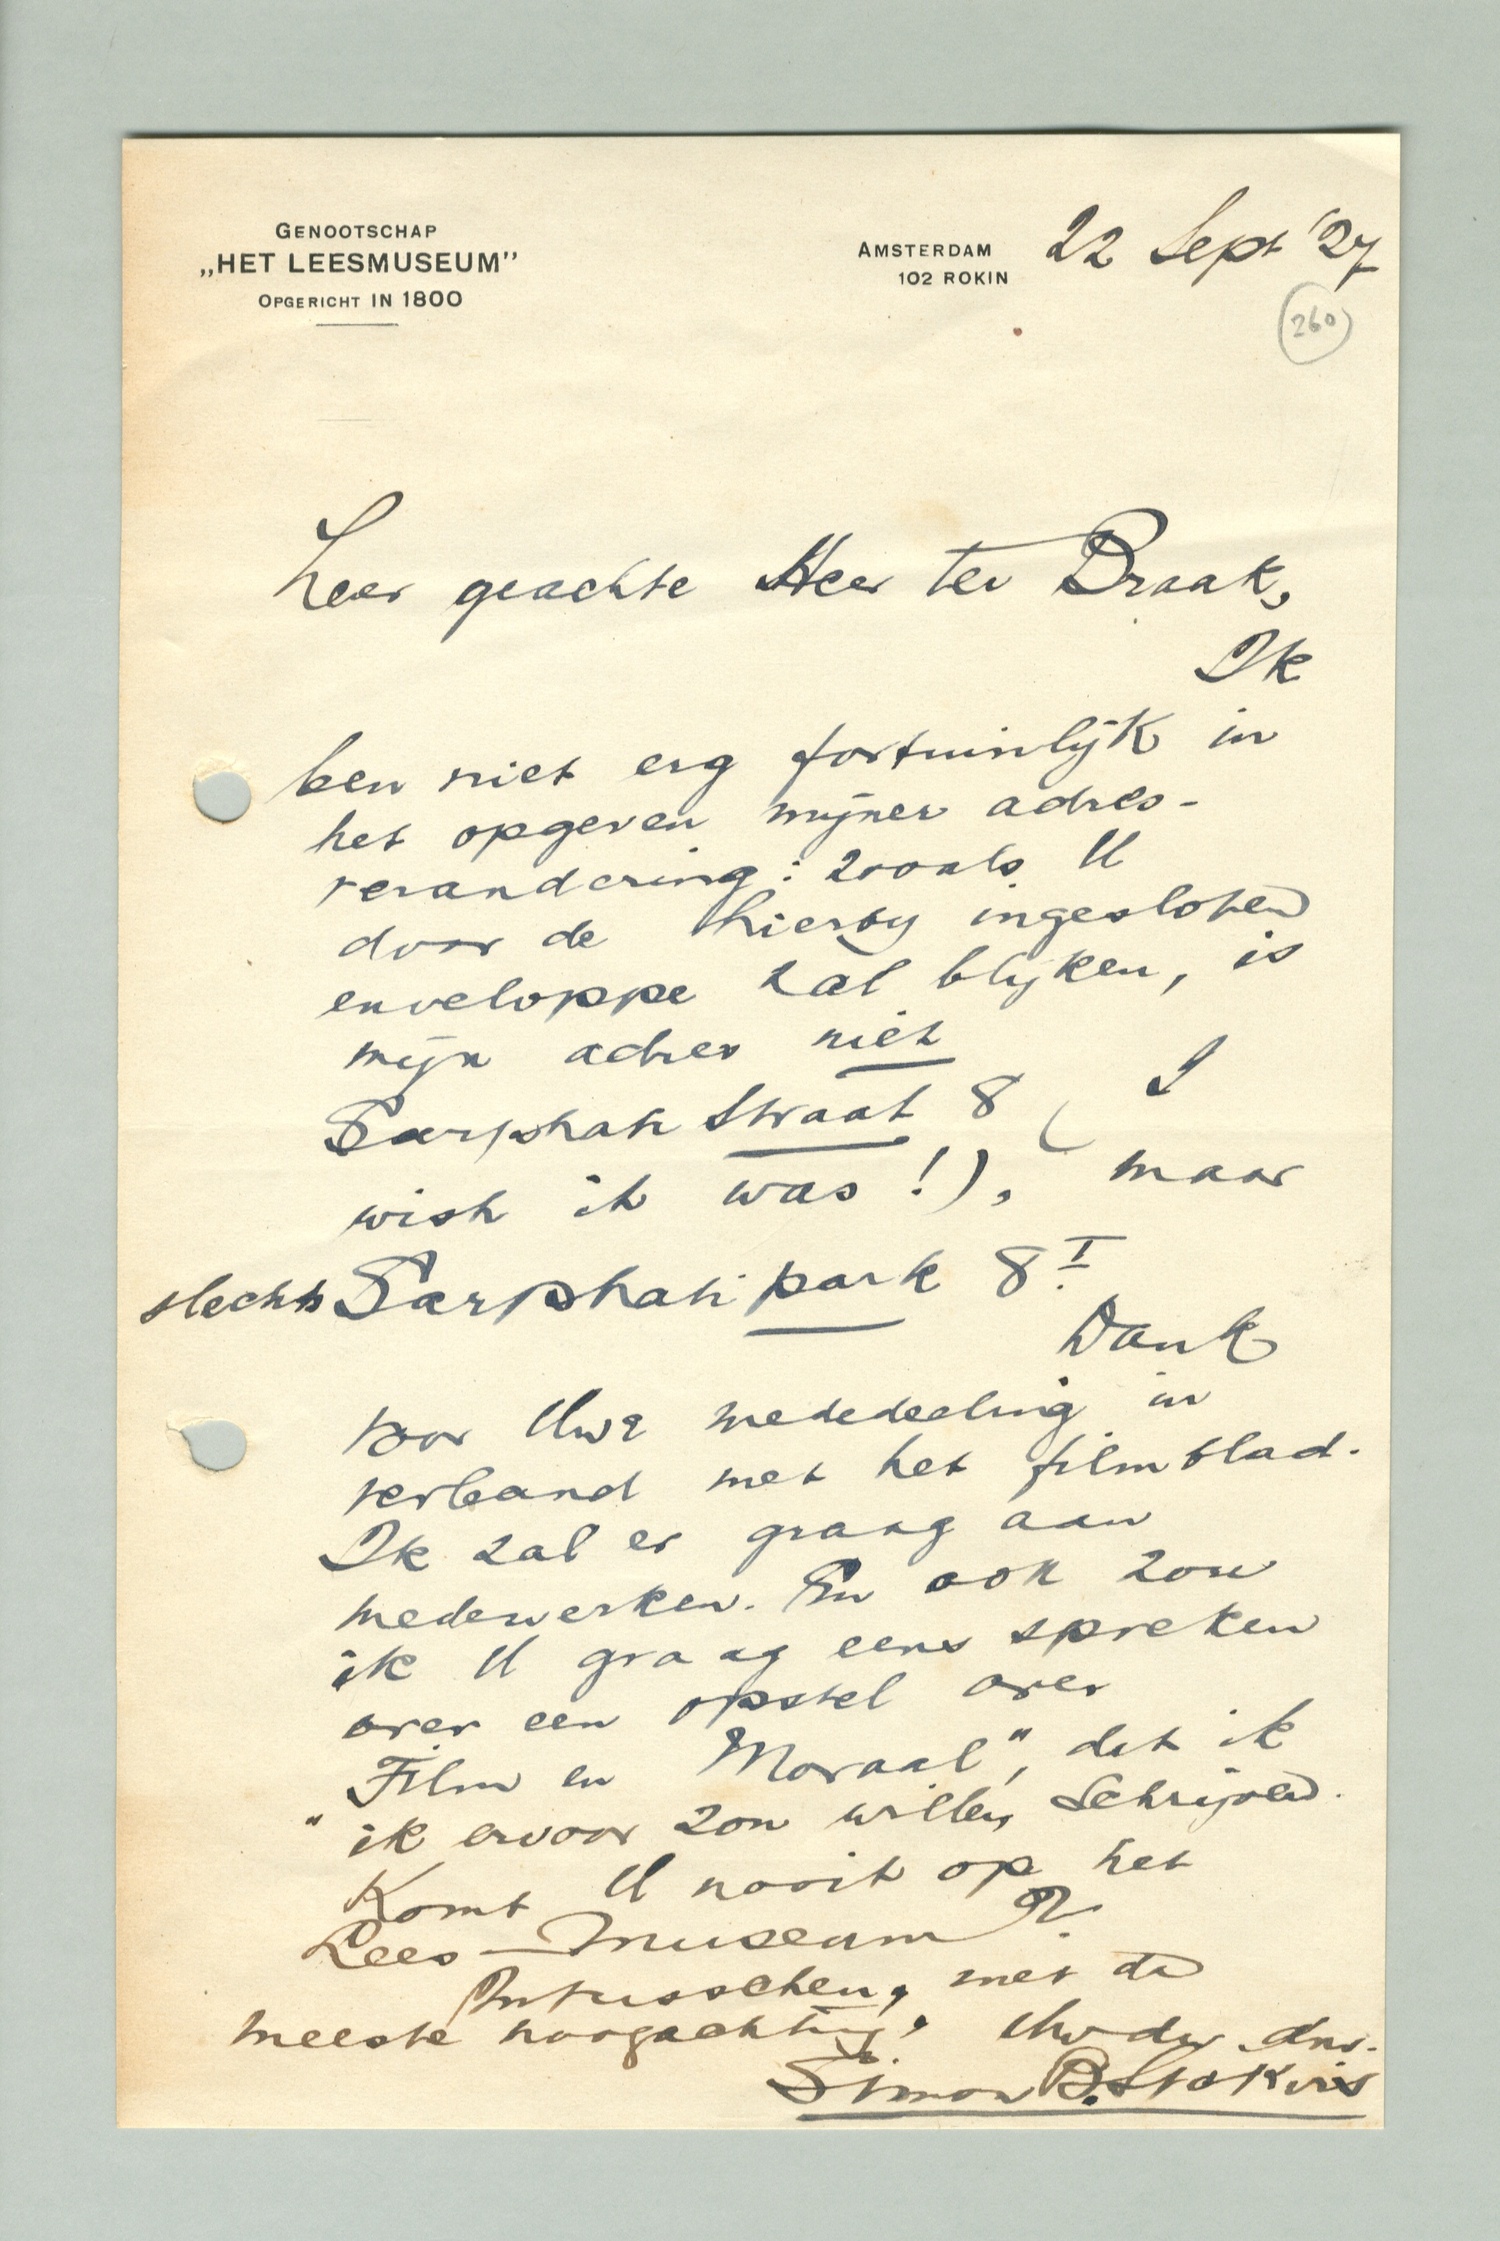 GENOOTSCHAP
„HET LEESMUSEUM”
OPGERICHT IN 1800
AMSTERDAM 22 Sept '27
102 ROKIN
260
Zeer geachte Heer ter Braak,
Ik
ben niet erg fortuinlijk in
het opgeven mijner adres-
verandering: zooals U
door de hierbij ingesloten
enveloppe zal blijken, is
mijn adres niet
Sarphati straat 8 (I
wish it was!), maar
slechts Sarphatipark 8 I.
Dank
voor Uwe mededeeling in
verband met het filmblad.
Ik zal er graag aan
medewerken. En ook zou
ik U graag eens spreken
over een opstel over
"Film en Moraal", dat ik
ik ervoor zou willen schrijven.
Komt U nooit op het
Lees-museum?
Intusschen, met de
meeste hoogachting, Uw dw. dnr.
Simon B. Stokvis